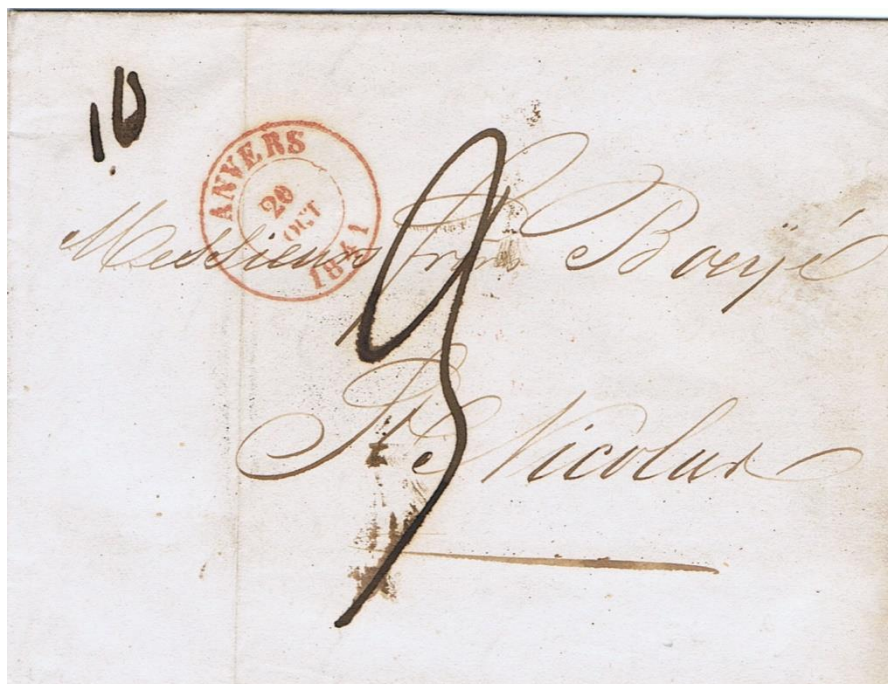 10
ANVERS
20
OCT
1841
Messieurs
3
St Nicolas